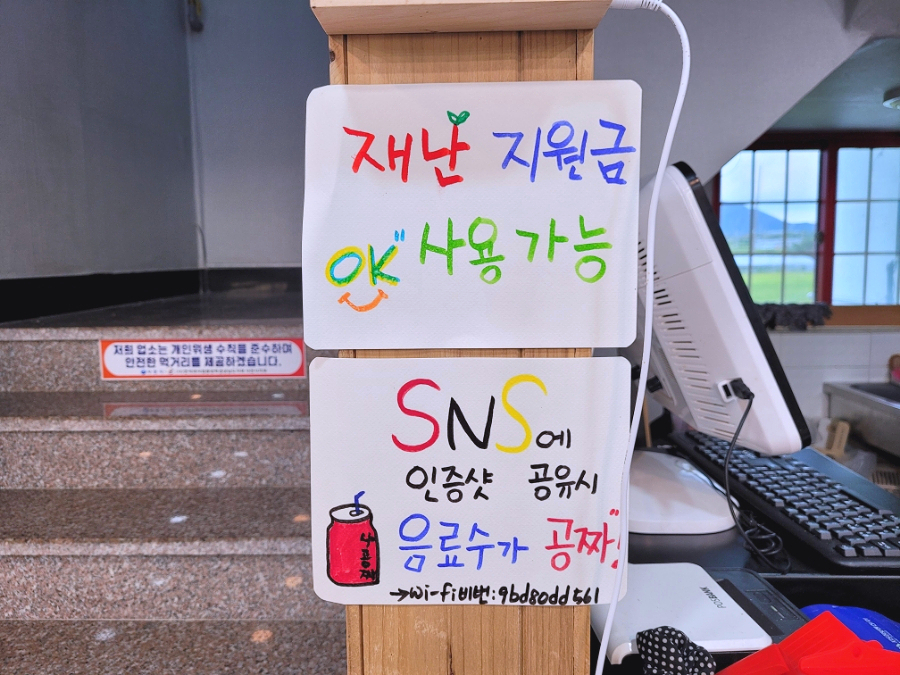 재난 지원금
OK" 사용 가능
저희 업소는 개인위생 수칙을 준수하며
안전한 먹거리를 제공하겠습니다.
SNS에
인증샷 공유시
음료수가 공짜"!
→wi-fi비번:9bd80dd561